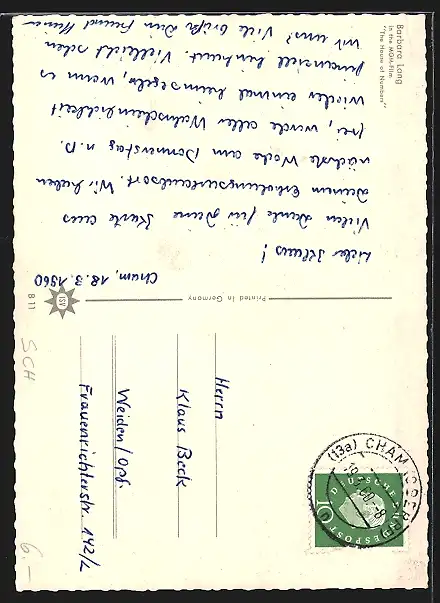 Barbara Lang
in the MGM-Film
"The House of Numbers"
Cham, 18.3.1960
Lieber Klaus!
Vielen Dank für Deine Karte aus
Deinem Erholungsurlaubsort. Wir haben
nächste Woche am Donnerstag n. D.
frei, werde aller Wahrscheinlichkeit
wieder einmal heimsegeln, wenn es
finanziell hinhaut. Vielleicht sehen
wir uns? Viele Grüße Dein Freund
Printed in Germany
ISV
B 11
Herrn
Klaus Beck
Weiden/Opf.
Frauenrichterstr. 142/2
(13a) CHAM (OBERPF)
DEUTSCHE BUNDESPOST
10
SCH
6.-